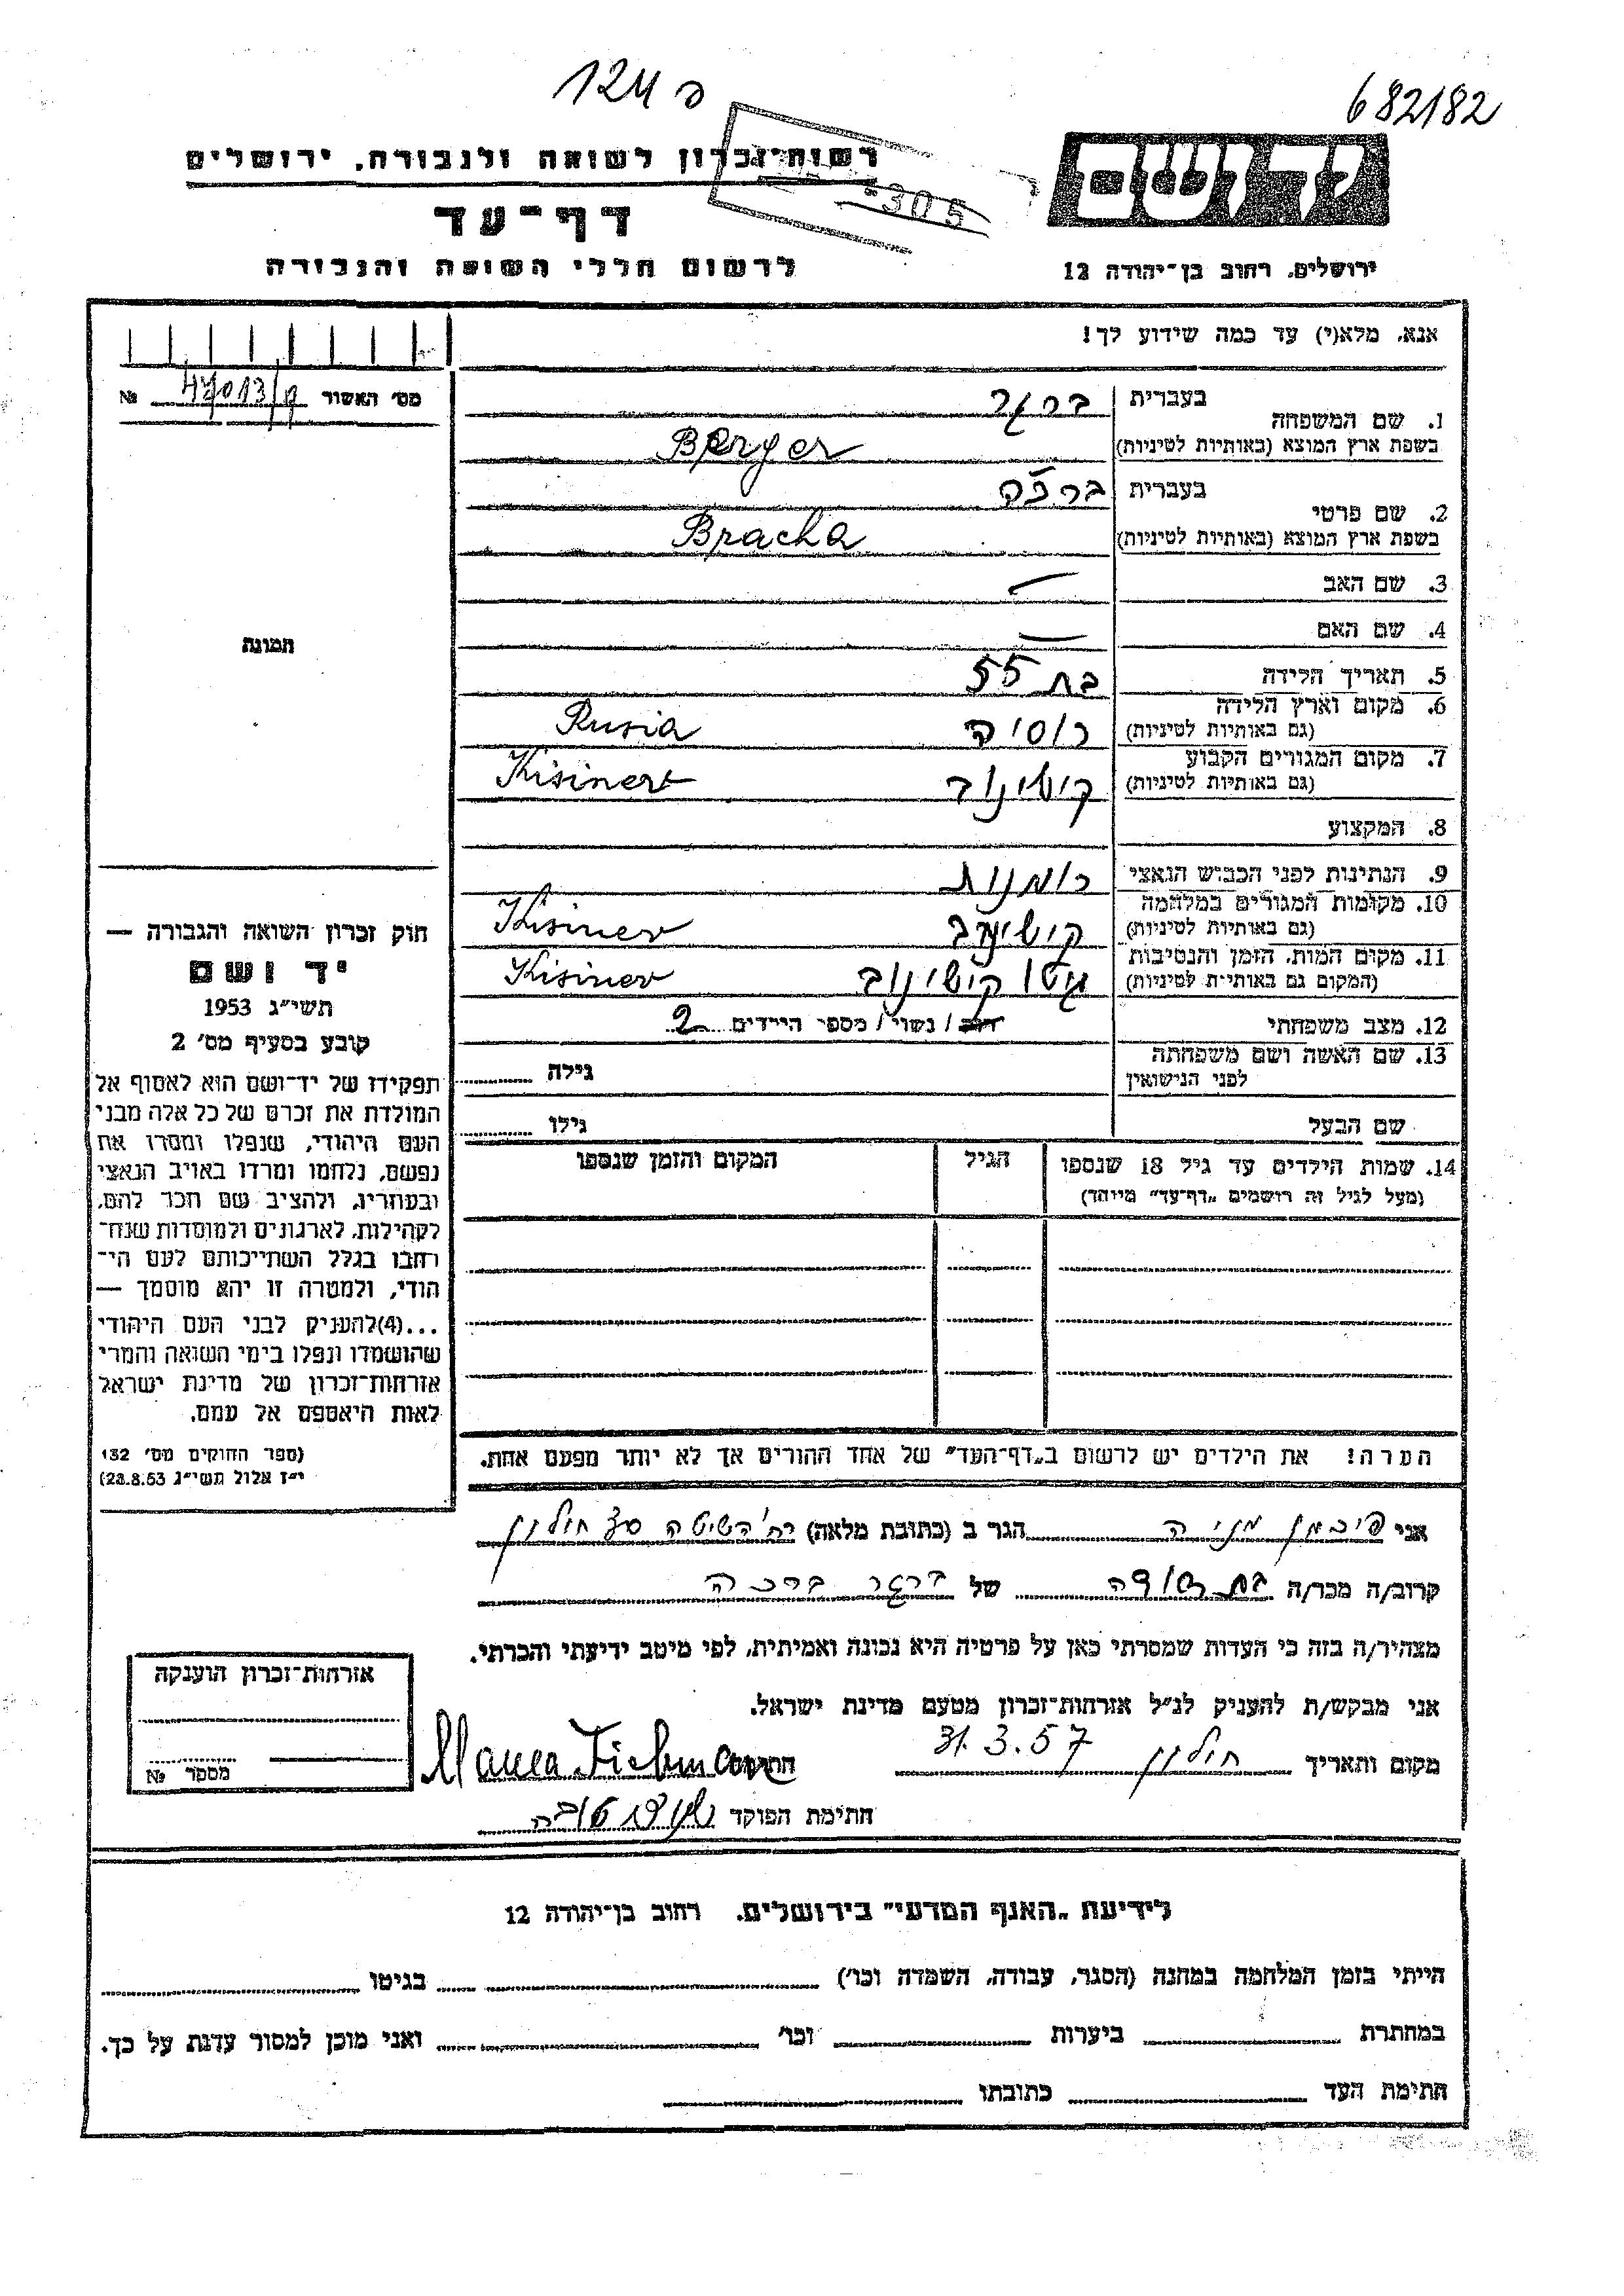 124 פ
682182
רשות־זכרון לשואה ולגבורה, ירושלים
305
יד ושם
דף־עד
לרשום חללי השואה והגבורה
ירושלים, רחוב בן־יהודה 12
אנא, מלא(י) עד כמה שידוע לך!
מס' האשור 47013/ № 
1. שם המשפחה
בעברית ברגר
בשפת ארץ המוצא (באותיות לטיניות) Berger
2. שם פרטי
בעברית ברכה
בשפת ארץ המוצא (באותיות לטיניות) Bracha
3. שם האב —
4. שם האם —
תמונה
5. תאריך הלידה בת 55
6. מקום וארץ הלידה
(גם באותיות לטיניות) רוסיה Rusia
7. מקום המגורים הקבוע
(גם באותיות לטיניות) קישינוב Kisinev
8. המקצוע
9. הנתינות לפני הכבוש הנאצי רומנית
10. מקומות המגורים במלחמה
(גם באותיות לטיניות) קישינוב Kisinev
11. מקום המות, הזמן והנסיבות
(המקום גם באותיות לטיניות) גטו קישינוב Kisinev
12. מצב משפחתי רווק / נשוי / מספר הילדים 2
13. שם האשה ושם משפחתה
לפני הנישואין גילה
שם הבעל גילו
14. שמות הילדים עד גיל 18 שנספו
(מעל לגיל זה רושמים „דף־עד” מיוחד)
הגיל
המקום והזמן שנספו
הערה! את הילדים יש לרשום ב„דף־העד” של אחד ההורים אך לא יותר מפעם אחת.
חוק זכרון השואה והגבורה —
יד ושם
תשי"ג 1953
קובע בסעיף מס' 2
תפקידו של יד־ושם הוא לאסוף אל
המולדת את זכרם של כל אלה מבני
העם היהודי, שנפלו ומסרו את
נפשם, נלחמו ומרדו באויב הנאצי
ובעוזריו, ולהציב שם וזכר להם,
לקהילות, לארגונים ולמוסדות שנח־
רבו בגלל השתייכותם לעם הי־
הודי, ולמטרה זו יהא מוסמך —
...(4)להעניק לבני העם היהודי
שהושמדו ונפלו בימי השואה והמרי
אזרחות־זכרון של מדינת ישראל
לאות היאספם אל עמם.
(ספר החוקים מס' 132
י"ז אלול תשי"ג 28.8.53)
אני פיכמן מניה הגר ב (כתובת מלאה) רח' השיטה חולון
קרוב/ה מכר/ה בת דודה של ברגר ברכה
מצהיר/ה בזה כי העדות שמסרתי כאן על פרטיה היא נכונה ואמיתית, לפי מיטב ידיעתי והכרתי.
אני מבקש/ת להעניק לנ"ל אזרחות־זכרון מטעם מדינת ישראל.
מקום ותאריך חולון 31.3.57 Manea Fichman
חתימת הפוקד
אזרחות־זכרון הוענקה
מספר №
לידיעת „האגף המדעי” בירושלים, רחוב בן־יהודה 12
הייתי בזמן המלחמה במחנה (הסגר, עבודה, השמדה וכו') בגיטו
במחתרת ביערות וכו' ואני מוכן למסור עדות על כך.
חתימת העד כתובתו